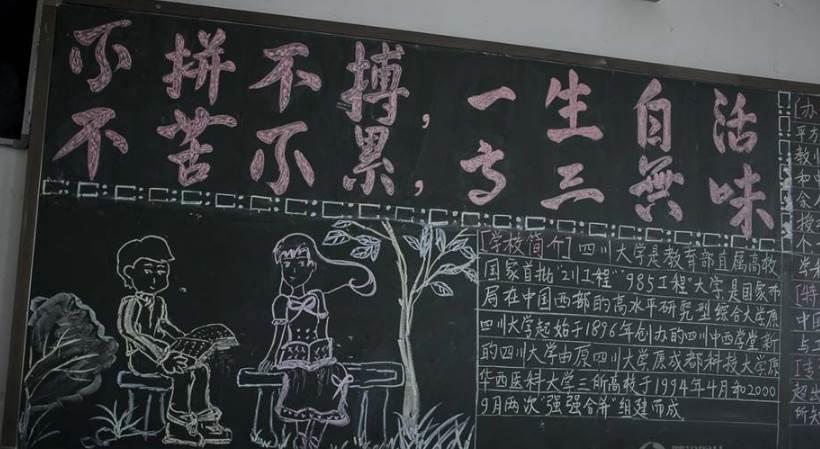 不拼不搏,一生自活
不苦不累,高三無味
[学校简介] 四川大学是教育部直属高校
国家首批"211工程""985工程"大学是国家布
局在中国西部的高水平研究型综合大学原
四川大学起始于1896年创办的四川中西学堂新
的四川大学由原四川大学原成都科技大学原
华西医科大学三所高校于1994年4月和2000
9月两次"强强合并"组建而成
[办
平方
和中
个
学科
[特
中国
超出
所知